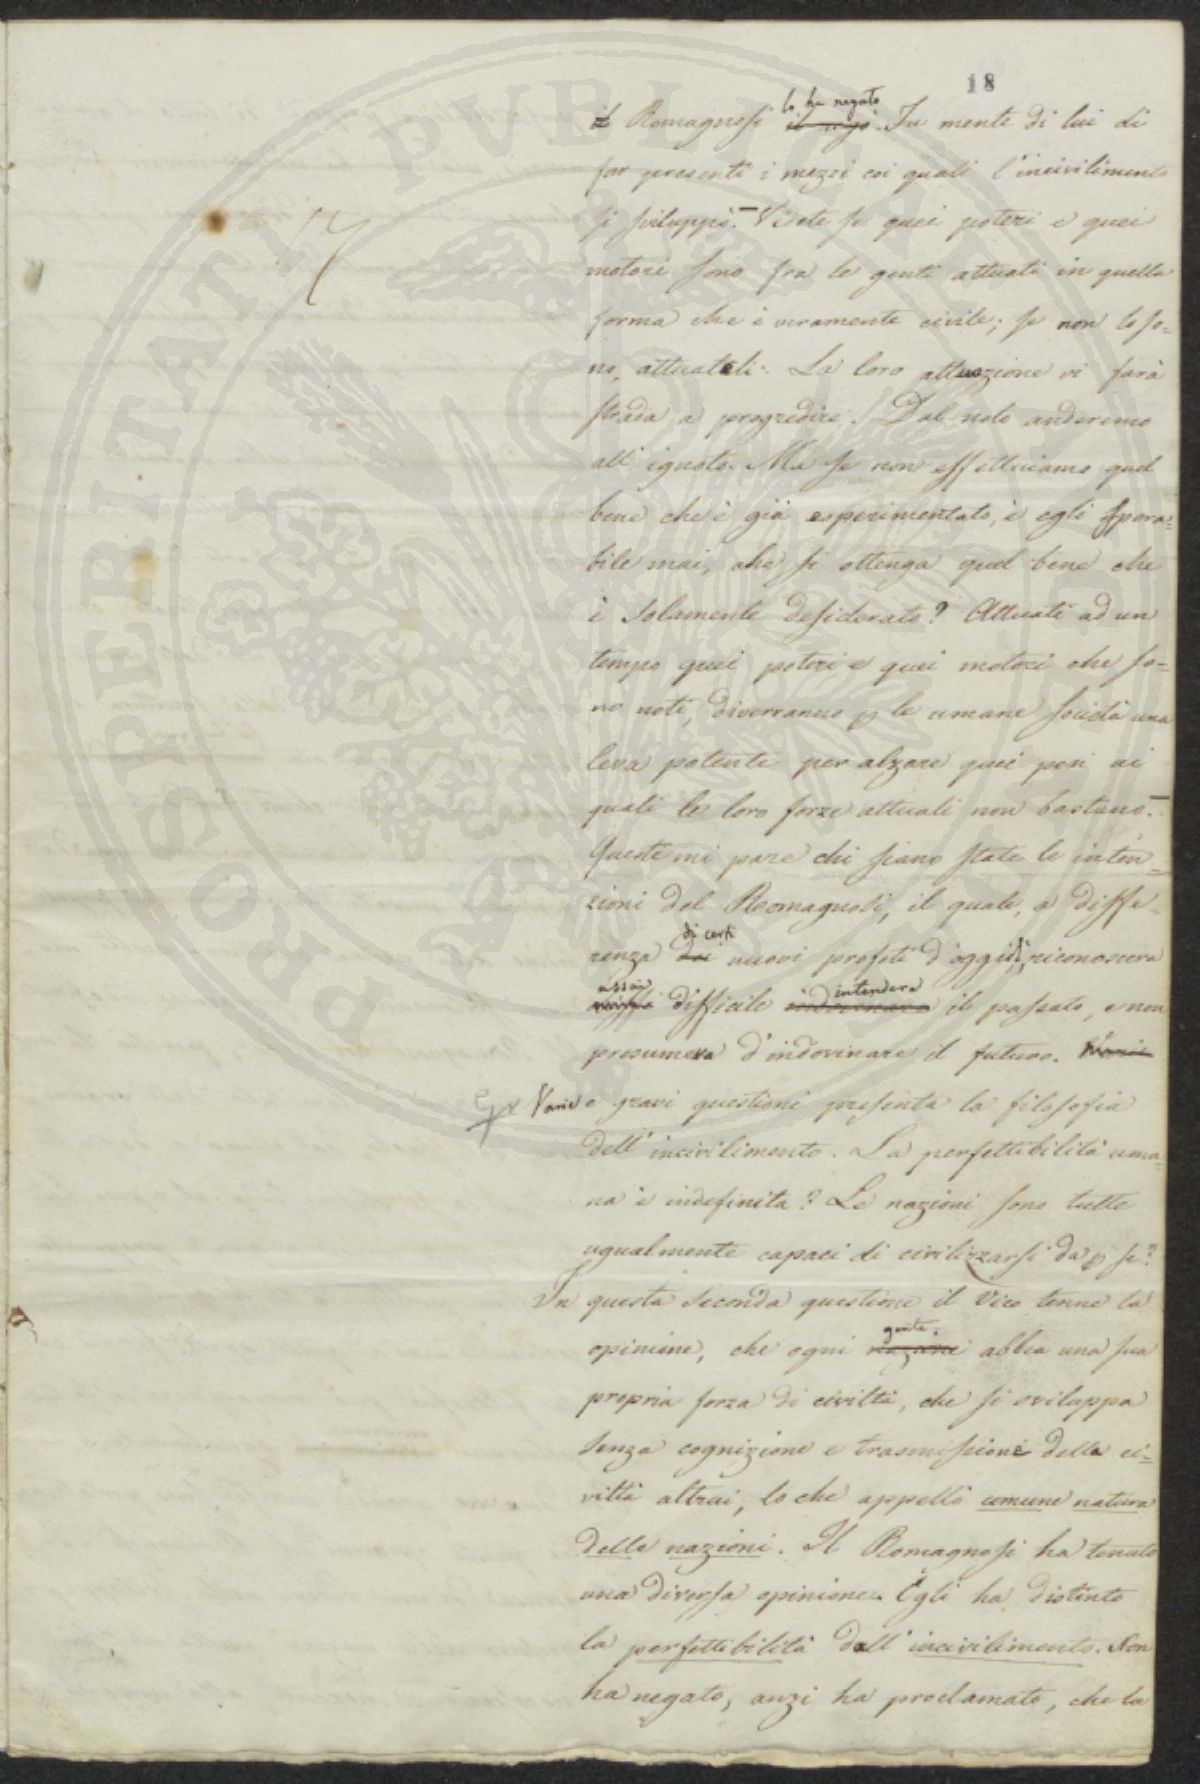 18
lo ha negato
il Romagnosi il negò. Fu mente di lui di
far presenti i mezzi coi quali l'incivilimento
si sviluppò. — Vedete se quei poteri e quei
motori sono fra le genti attuati in quella
forma che è veramente civile; se non lo so=
no, attuateli: La loro attuazione vi farà
strada a progredire. Dal noto anderemo
all'ignoto. Ma se non effettuiamo quel
bene che è già esperimentato, è egli spera=
bile mai, che si ottenga quel bene che
è solamente desiderato? Attuati ad un
tempo quei poteri e quei motori che so=
no noti, diverranno p le umane società una
leva potente per alzare quei pesi ai
quali le loro forze attuali non bastano. —
Queste mi pare che siano state le inten=
zioni del Romagnosi, il quale, a diffe=
di certi
renza dei nuovi profeti d'oggidì, riconosceva
assai intendere
difficile indovinare il passato, e non
presumeva d'indovinare il futuro. Varie
Varie e gravi questioni presenta la filosofia
dell'incivilimento. La perfettibilità uma=
na è indefinita? Le nazioni sono tutte
ugualmente capaci di civilizzarsi da p se?
In questa seconda questione il Vico tenne la
gente
opinione, che ogni nazione abbia una sua
propria forza di civiltà, che si sviluppa
senza cognizione e trasmissione della ci=
viltà altrui, lo che appellò comune natura
delle nazioni. Il Romagnosi ha tenuto
una diversa opinione. Egli ha distinto
la perfettibilità dall'incivilimento. Non
ha negato, anzi ha proclamato, che la
PROSPERITATI PVBLICAE